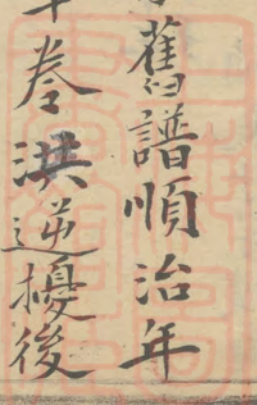 舊譜順治年
卷洪逆擾後